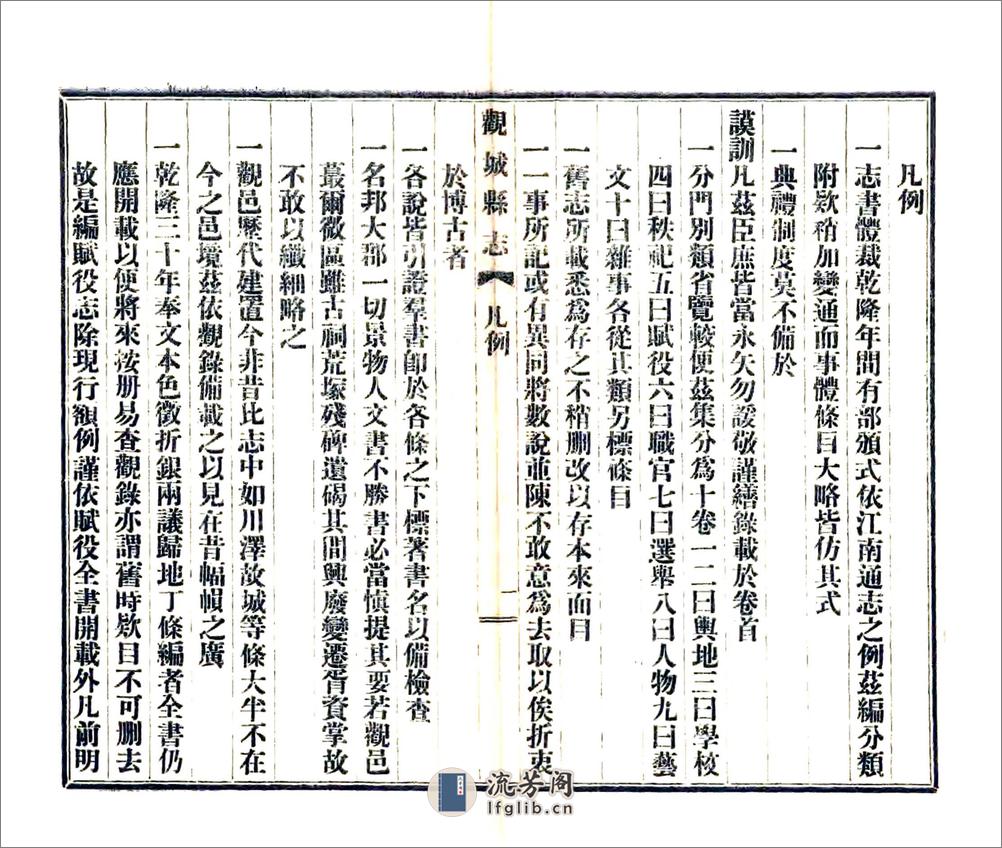 凡例
一志書體裁乾隆年間有部頒式依江南通志之例茲編分類
附欵稍加變通而事體條目大略皆仿其式
一典禮制度莫不備於
謨訓凡茲臣庶皆當永矢勿諼敬謹繕錄載於卷首
一分門別類省覽較便茲集分爲十卷一二曰輿地三曰學校
四曰秩祀五曰賦役六曰職官七曰選舉八曰人物九曰藝
文十曰雜事各從其類另標條目
一舊志所載悉爲存之不稍删改以存本來面目
一一事所記或有異同將數說並陳不敢意爲去取以俟折衷
觀城縣志
凡例
一
於博古者
一各說皆引證羣書卽於各條之下標著書名以備檢查
一名邦大郡一切景物人文書不勝書必當愼提其要若觀邑
蕞爾微區雖古祠荒塚殘碑遺碣其間興廢變遷胥資掌故
不敢以纖細略之
一觀邑歷代建置今非昔比志中如川澤故城等條大半不在
今之邑境茲依觀錄備載之以見在昔幅幀之廣
一乾隆三十年奉文本色徵折銀兩議歸地丁條編者全書仍
應開載以便將來按册易查觀錄亦謂舊時欵目不可删去
故是編賦役志除現行額例謹依賦役全書開載外凡前明
流芳阁
lfglib.cn